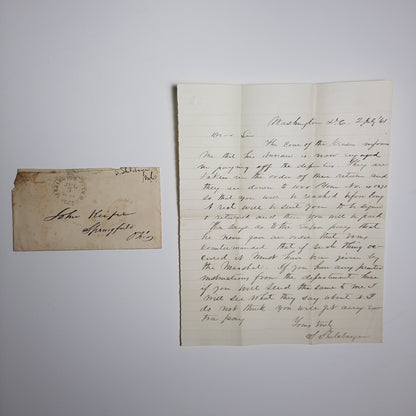 S Shellabarger
M.C.
John Kiefer
Springfield
Ohio
Washington D.C. 2 July '61
Dear Sir
The Com of the Census informs
me that his bureau is now engaged
in paying off the deputies. They are
taken in the order of their returns and
they are down to
so that you will be reached before long
A rect will be sent you to be signed
& returned and then you will be paid
He says as to the
he never gave an order that was
countermanded that if such thing oc-
cured it must have been given by
the Marshal. If you have any printed
instructions from the department there
if you will send the same to me I
will see what they say about it I
do not think you will get any
pay
Yours truly
S Shellabarger